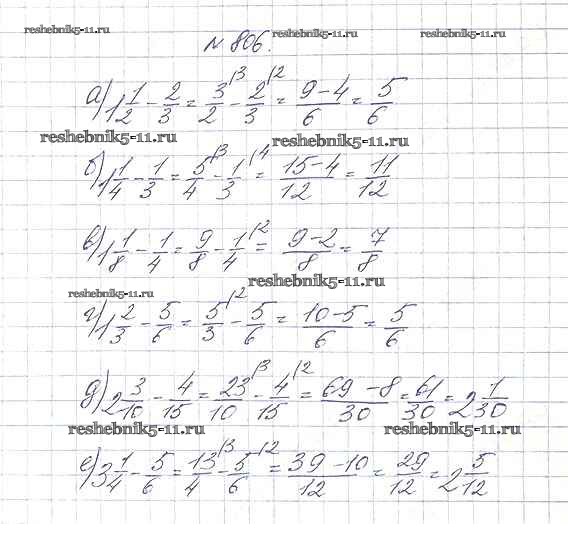 reshebnik5-11.ru reshebnik5-11.ru reshebnik5-11.ru
№ 806.
а) 1 1/2 - 2/3 = 3/2 |3 - 2/3 |2 = 9-4/6 = 5/6
reshebnik5-11.ru reshebnik5-11.ru
б) 1 1/4 - 1/3 = 5/4 |3 - 1/3 |4 = 15-4/12 = 11/12
в) 1 1/8 - 1/4 = 9/8 - 1/4 |2 = 9-2/8 = 7/8
reshebnik5-11.ru
reshebnik5-11.ru
г) 1 2/3 - 5/6 = 5/3 |2 - 5/6 = 10-5/6 = 5/6
д) 2 3/10 - 4/15 = 23/10 |3 - 4/15 |2 = 69-8/30 = 61/30 = 2 1/30
reshebnik5-11.ru reshebnik5-11.ru
е) 3 1/4 - 5/6 = 13/4 |3 - 5/6 |2 = 39-10/12 = 29/12 = 2 5/12